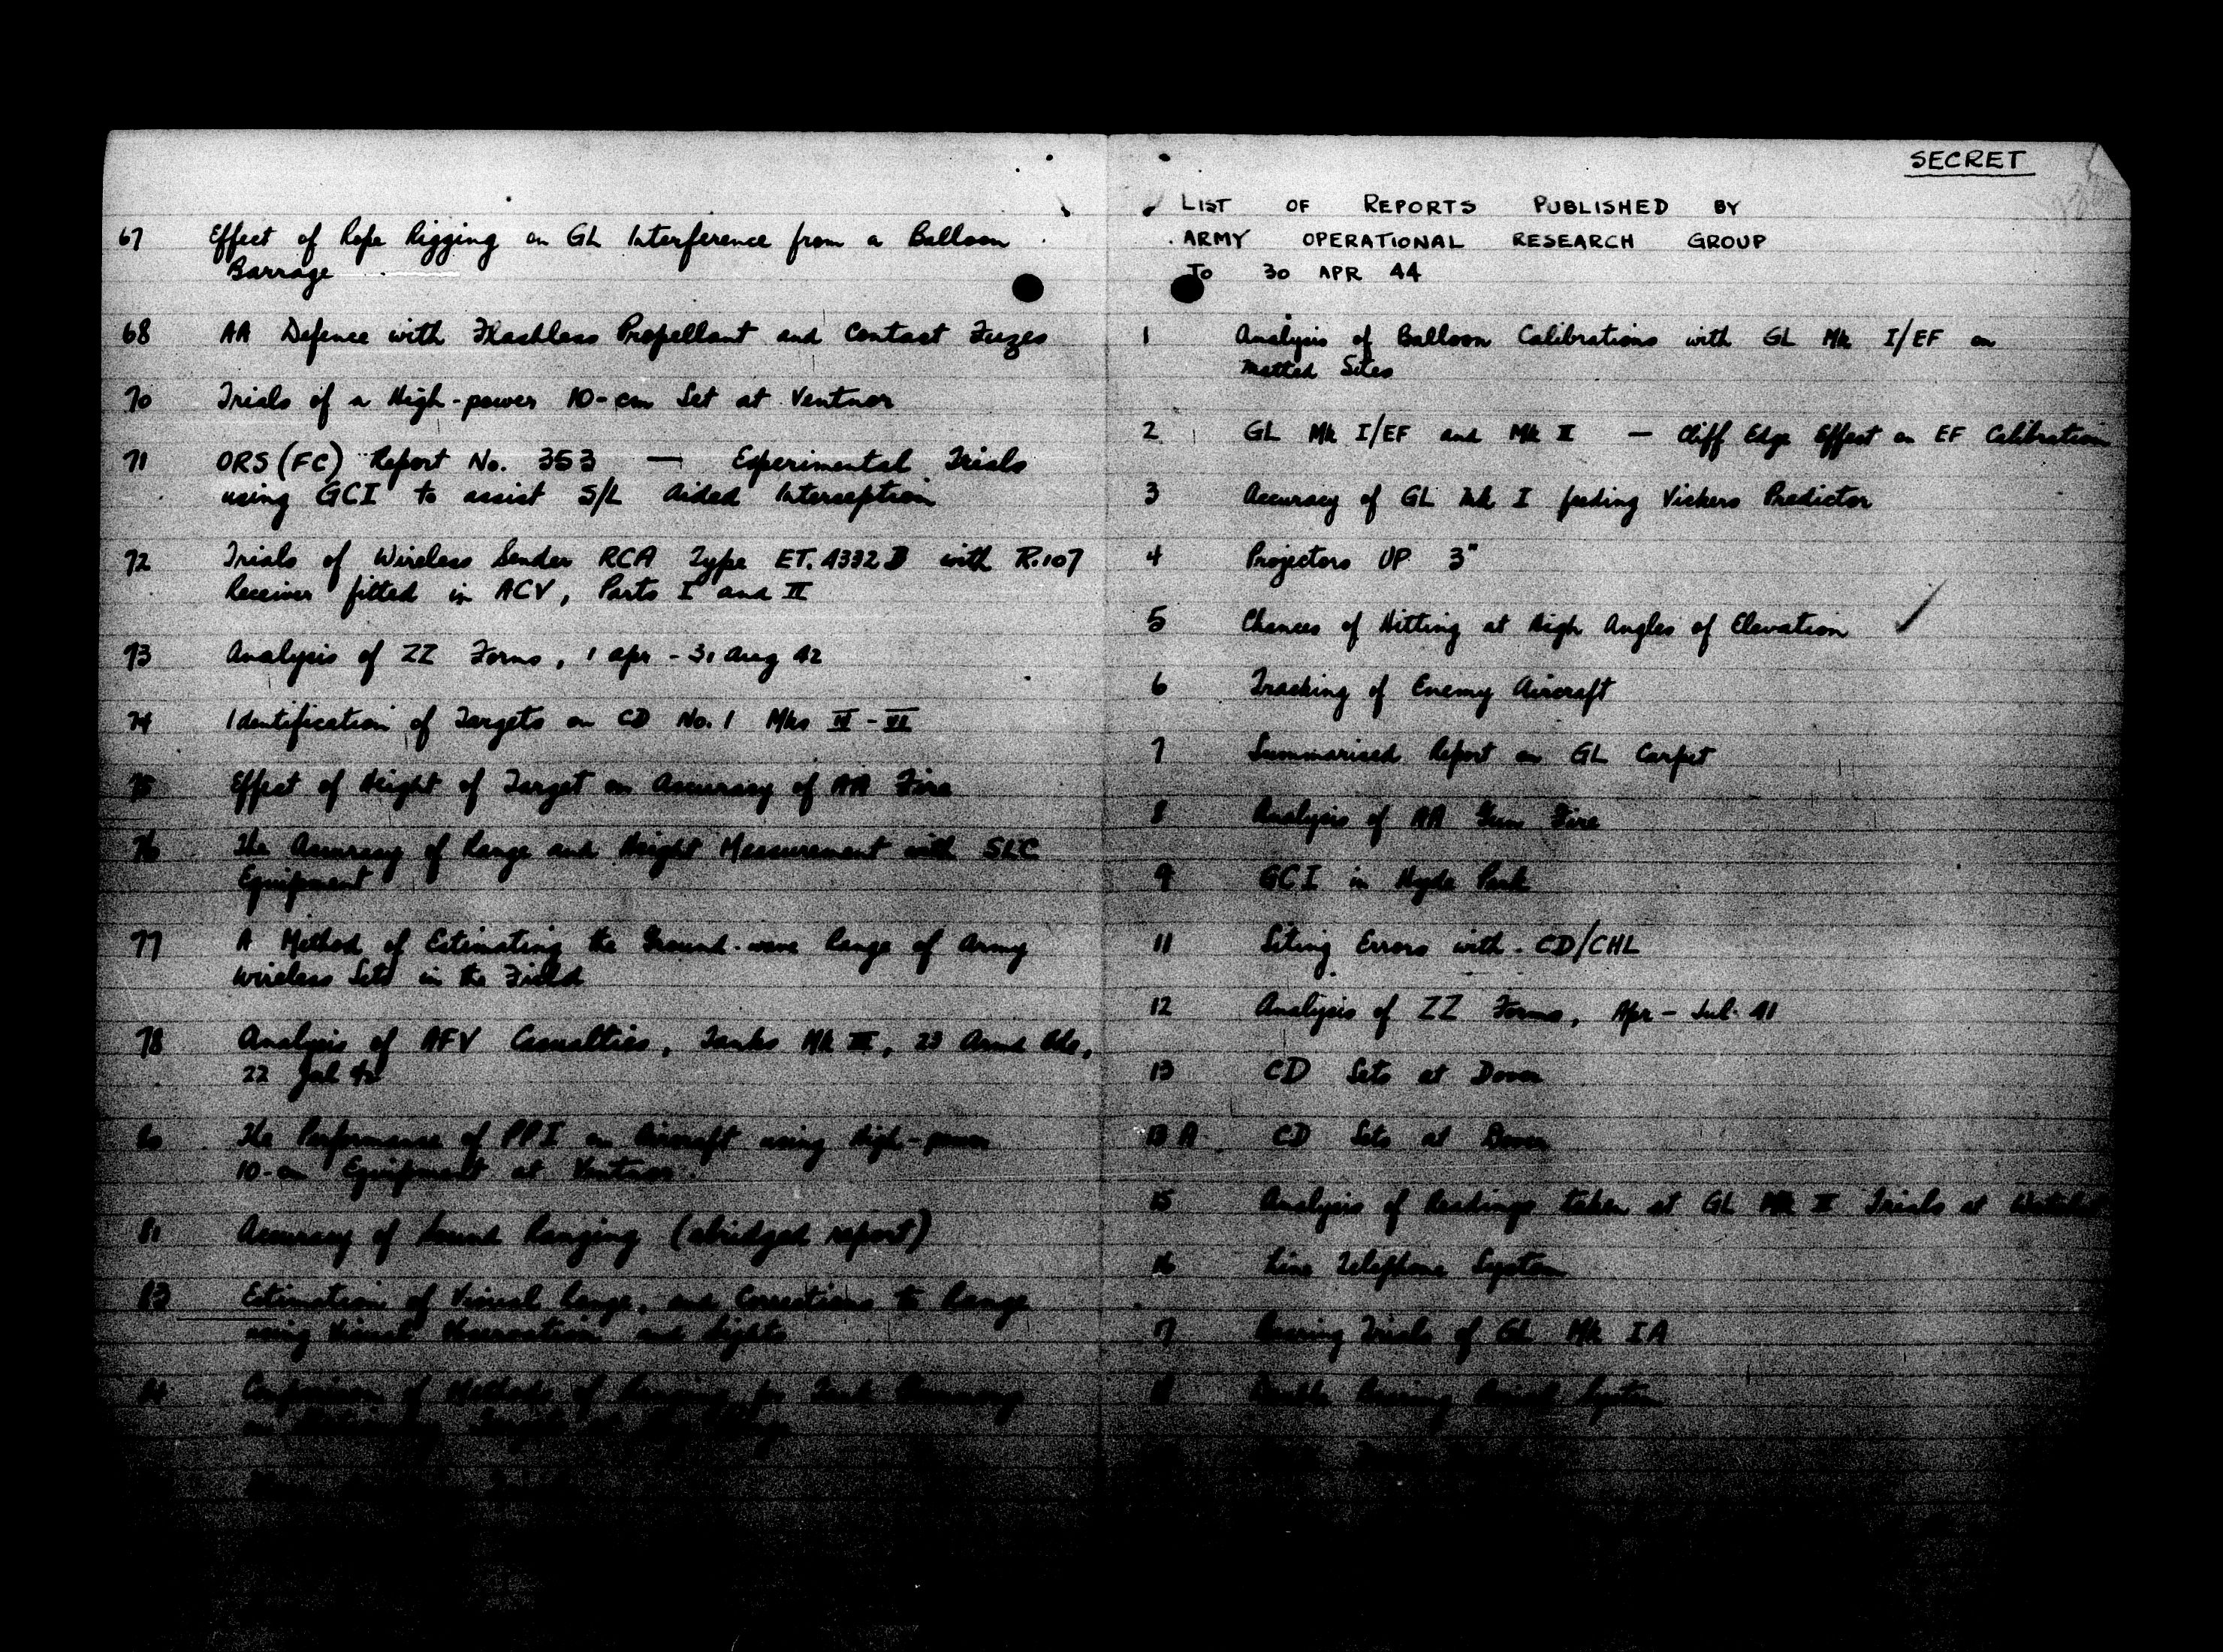 67 Effect of Rope Rigging on GL Interference from a Balloon
Barrage
68 AA Defence with Flashless Propellant and Contact Fuzes
70 Trials of a High-power 10-cm Set at Ventnor
71 ORS (FC) Report No. 353 — Experimental Trials
using GCI to assist S/L Aided Interception
72 Trials of Wireless Sender RCA Type ET. 4332 B with R.107
Receiver fitted in ACV, Parts I and II
73 Analysis of ZZ Forms, 1 Apr - 31 Aug 42
74 Identification of Targets on CD No. 1 Mks IV - VI
75 Effect of Height of Target on Accuracy of AA Fire
76 The Accuracy of Range and Height Measurement with SLC
Equipment
77 A Method of Estimating the Ground-wave Range of Army
Wireless Sets in the Field
78 Analysis of AFV Casualties, Tanks Mk III, 23 Armd Bde,
22 Jul 42
80 The Performance of PPI on Aircraft using High-power
10-cm Equipment at Ventnor
81 Accuracy of Sound Ranging (abridged report)
83 Estimation of Visual Range, and Corrections to Range
using Visual Observation and Sights
84 Comparison of Methods of Ranging for Tank Gunnery
SECRET
LIST OF REPORTS PUBLISHED BY
ARMY OPERATIONAL RESEARCH GROUP
TO 30 APR 44
1 Analysis of Balloon Calibrations with GL Mk I/EF on
Matted Sites
2 GL Mk I/EF and Mk II — Cliff Edge Effect on EF Calibration
3 Accuracy of GL Mk I feeding Vickers Predictor
4 Projectors UP 3"
5 Chances of Hitting at High Angles of Elevation
6 Tracking of Enemy Aircraft
7 Summarised Report on GL Carpet
8 Analysis of AA Gun Fire
9 GCI in Hyde Park
11 Siting Errors with CD/CHL
12 Analysis of ZZ Forms, Apr - Jul 41
13 CD Sets at Dover
13 A CD Sets at Dover
15 Analysis of Readings taken at GL Mk II Trials at
16 Line Telephone System
17 Bearing Trials of GL Mk IA
18 Double Bearing Aerial System